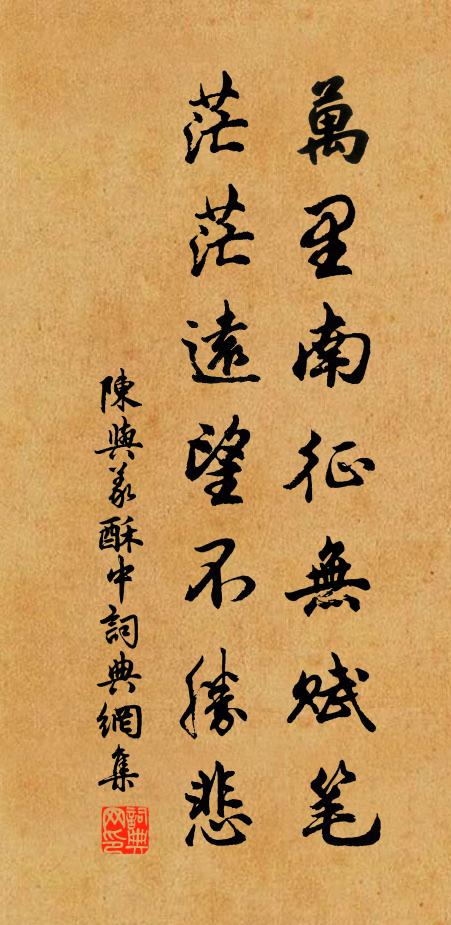 萬里南征無賦笔
茫茫遠望不勝悲
陳與義酥中詞典網集
詞典网印